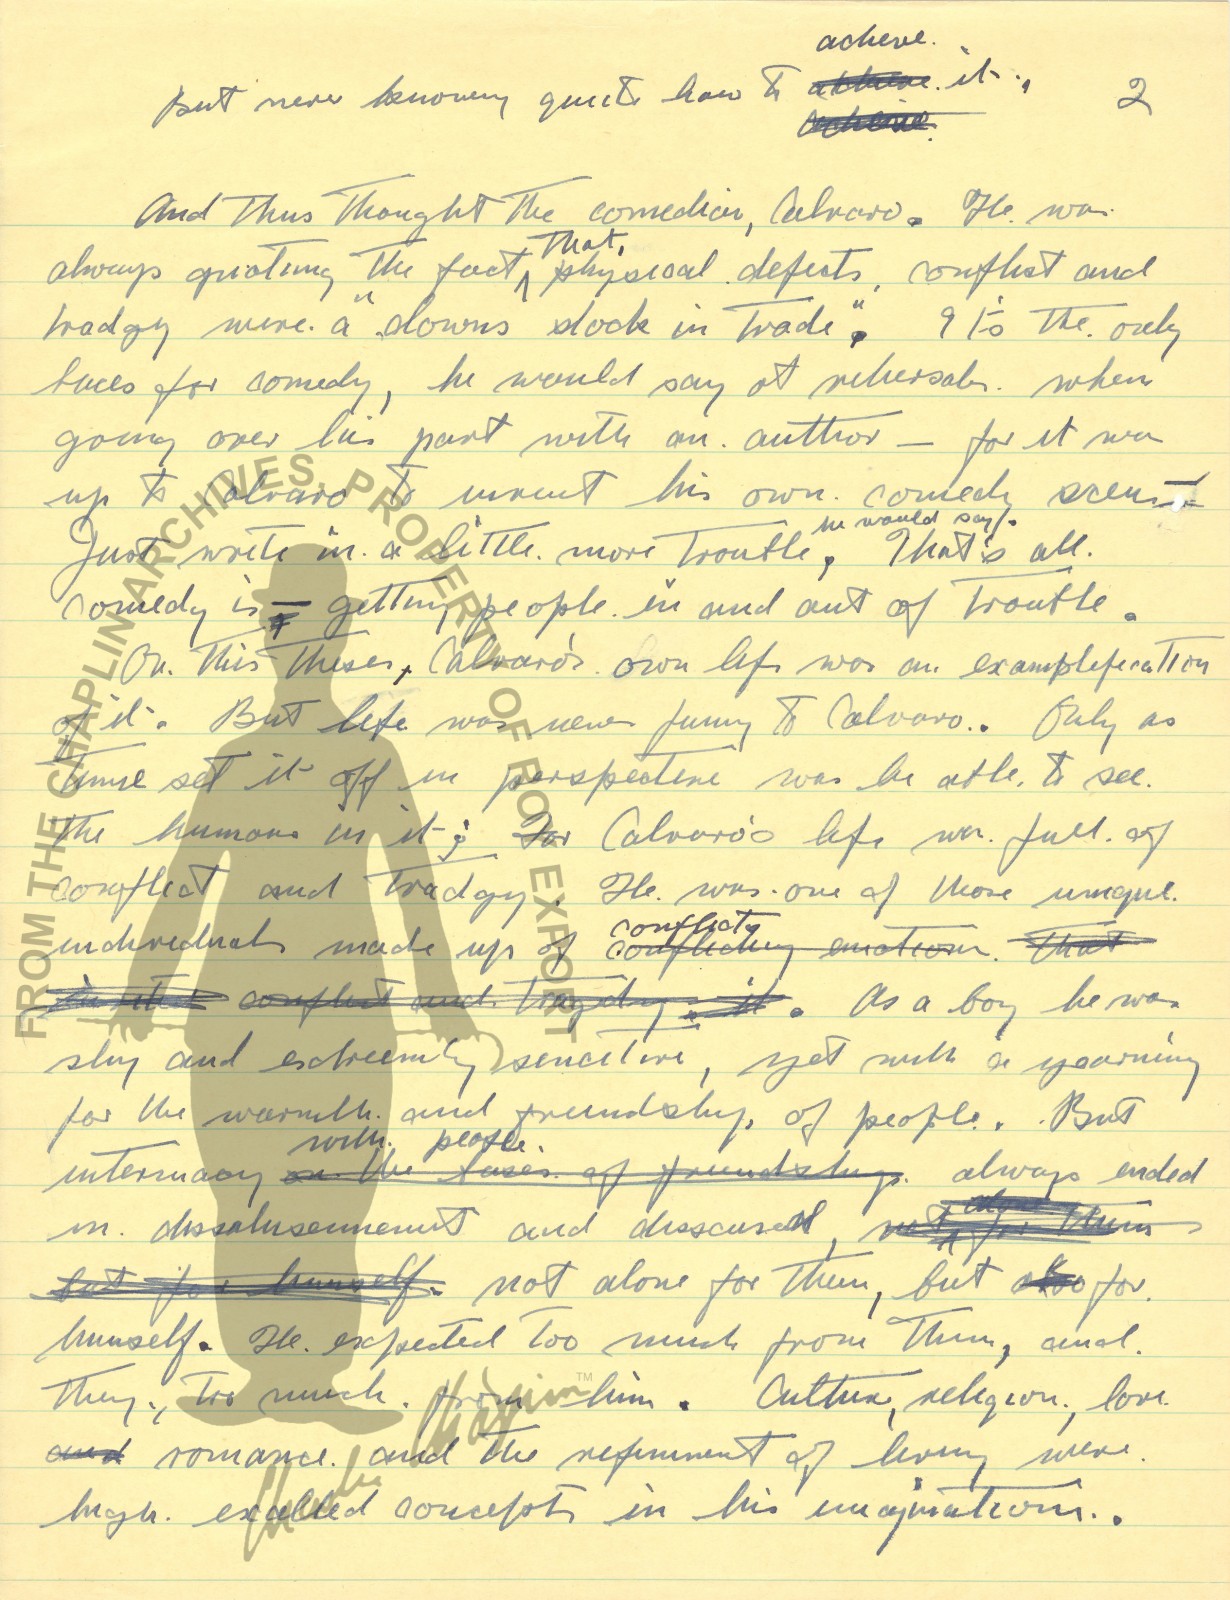 acheve.
But never knowing quite how to acheive it., 2
acheive.
And thus thought the comedian, Calvaro. He was
always quoting the fact, that, physical defects, conflict and
tradgy were a "clowns stock in trade". It's the only
bases for comedy, he would say at rehersals. when
going over his part with an author — for it was
up to Calvaro to invent his own comedy scenes
he would say.
Just write in a little more trouble, That's all.
comedy is getting people in and out of trouble.
On this theses, Calvaro's own life was an examplefication
of it. But life was never funny to Calvaro. Only as
time set it off in perspective was he able to see
the humans in it; For Calvaro's life was full of
conflict and tradgy. He was one of those unique
conflicty
individuals made up of conflicting emotions. that
in that conflict and tragidy it. As a boy he was
shy and extreemly sencitive, yet with a yearning
for the warmth and freindship of people. But
with people.
intermacy on the bases of freindship always ended
in dissolusenment and disscused, not alone for them
but for himself. not alone for them, but also for
himself. He expected too much from them, and
they, too much from him. Culture, religion, love
and romance and the refinment of living were
high exalted concepts in his imaginations.
FROM THE CHAPLIN ARCHIVES. PROPERTY OF ROY EXPORT
Charlie Chaplin™